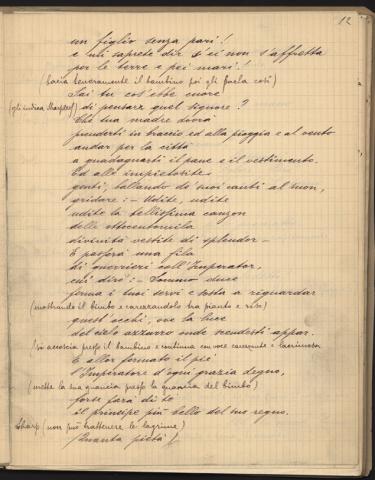 12
un figlio senza pari!
e mi saprete dir s'ei non s'affretta
per le terre e pei mari!
(bacia teneramente il bambino poi gli parla così)
Sai tu cos'ebbe cuore
(gli indica Sharpless) di pensare quel signore?
Che tua madre dovrà
prenderti in braccio ed alla pioggia e al vento
andar per la città
a guadagnarti il pane e il vestimento.
Ed alle impietosite
genti, ballando de' suoi canti al suon,
gridare: - Udite, udite
udite la bellissima canzon
delle ottocentomila
divinità vestite di splendor -
E passerà una fila
di guerrieri coll'Imperator,
cui dirò: - Sommo duce
ferma i tuoi servi e sosta a riguardar
(mostrando il bimbo e carezzandolo tra pianto e riso)
quest'occhi, ove la luce
del cielo azzurro onde scendesti appar.
(si accoscia presso il bambino e continua con voce carezzante e lacrimosa
E allor fermato il piè
l'Imperatore d'ogni grazia degno,
(mette la sua guancia presso la guancia del bimbo)
forse farà di te
il principe più bello del suo regno.
Sharp (non può trattenere le lagrime)
(Quanta pietà!)